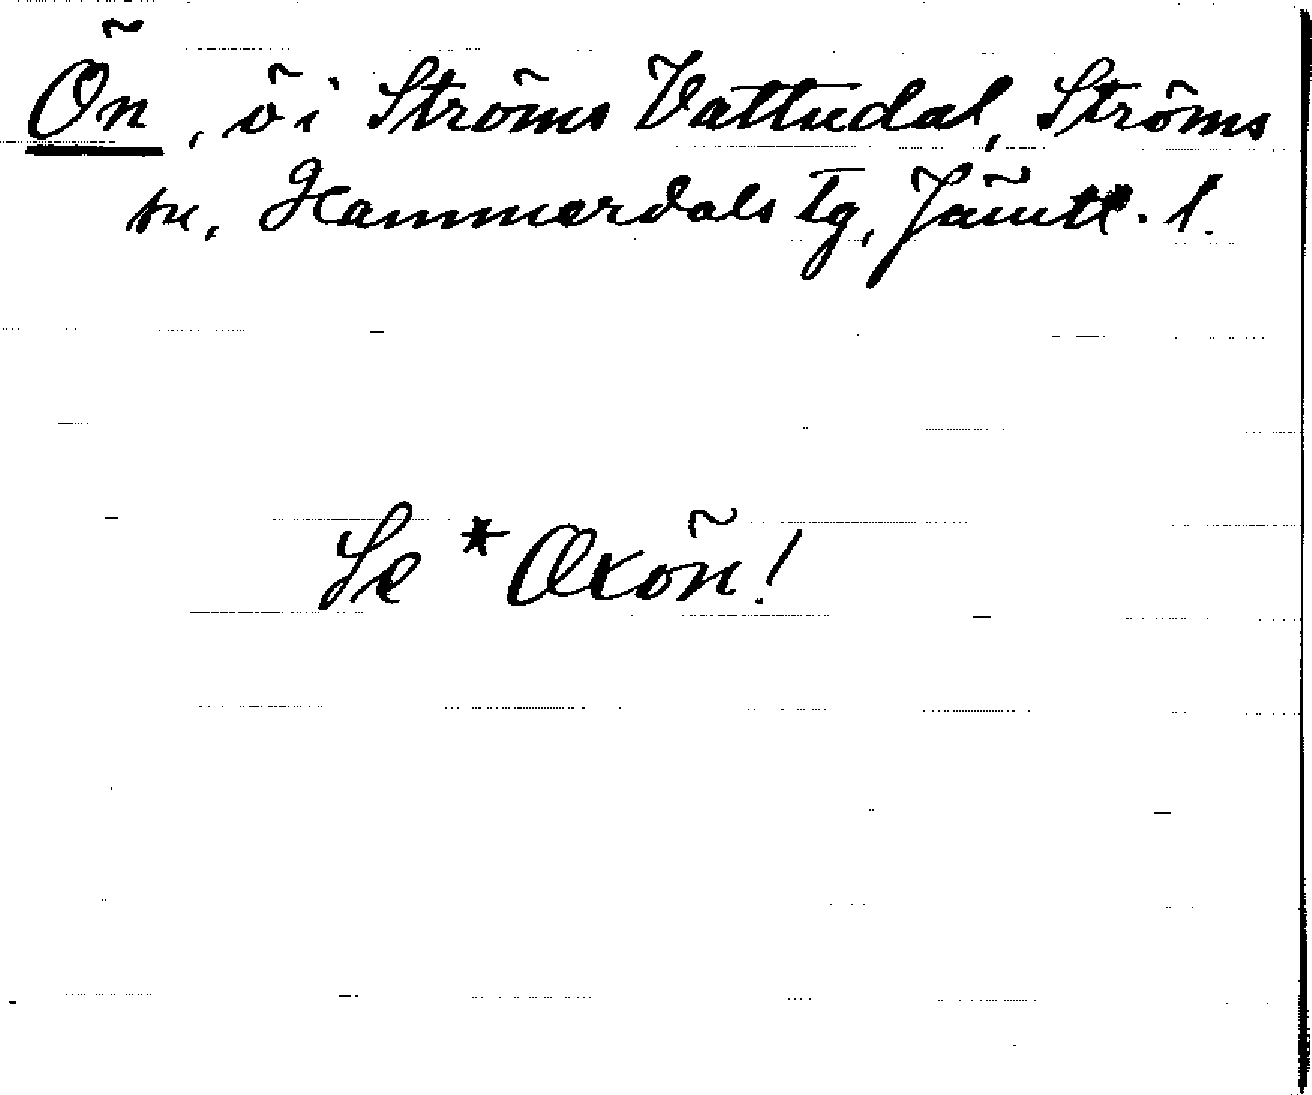 Ön, ö i Ströms Vattudal, Ströms
sn, Hammerdals tg, Jämtl. l.
Se *Oxön!